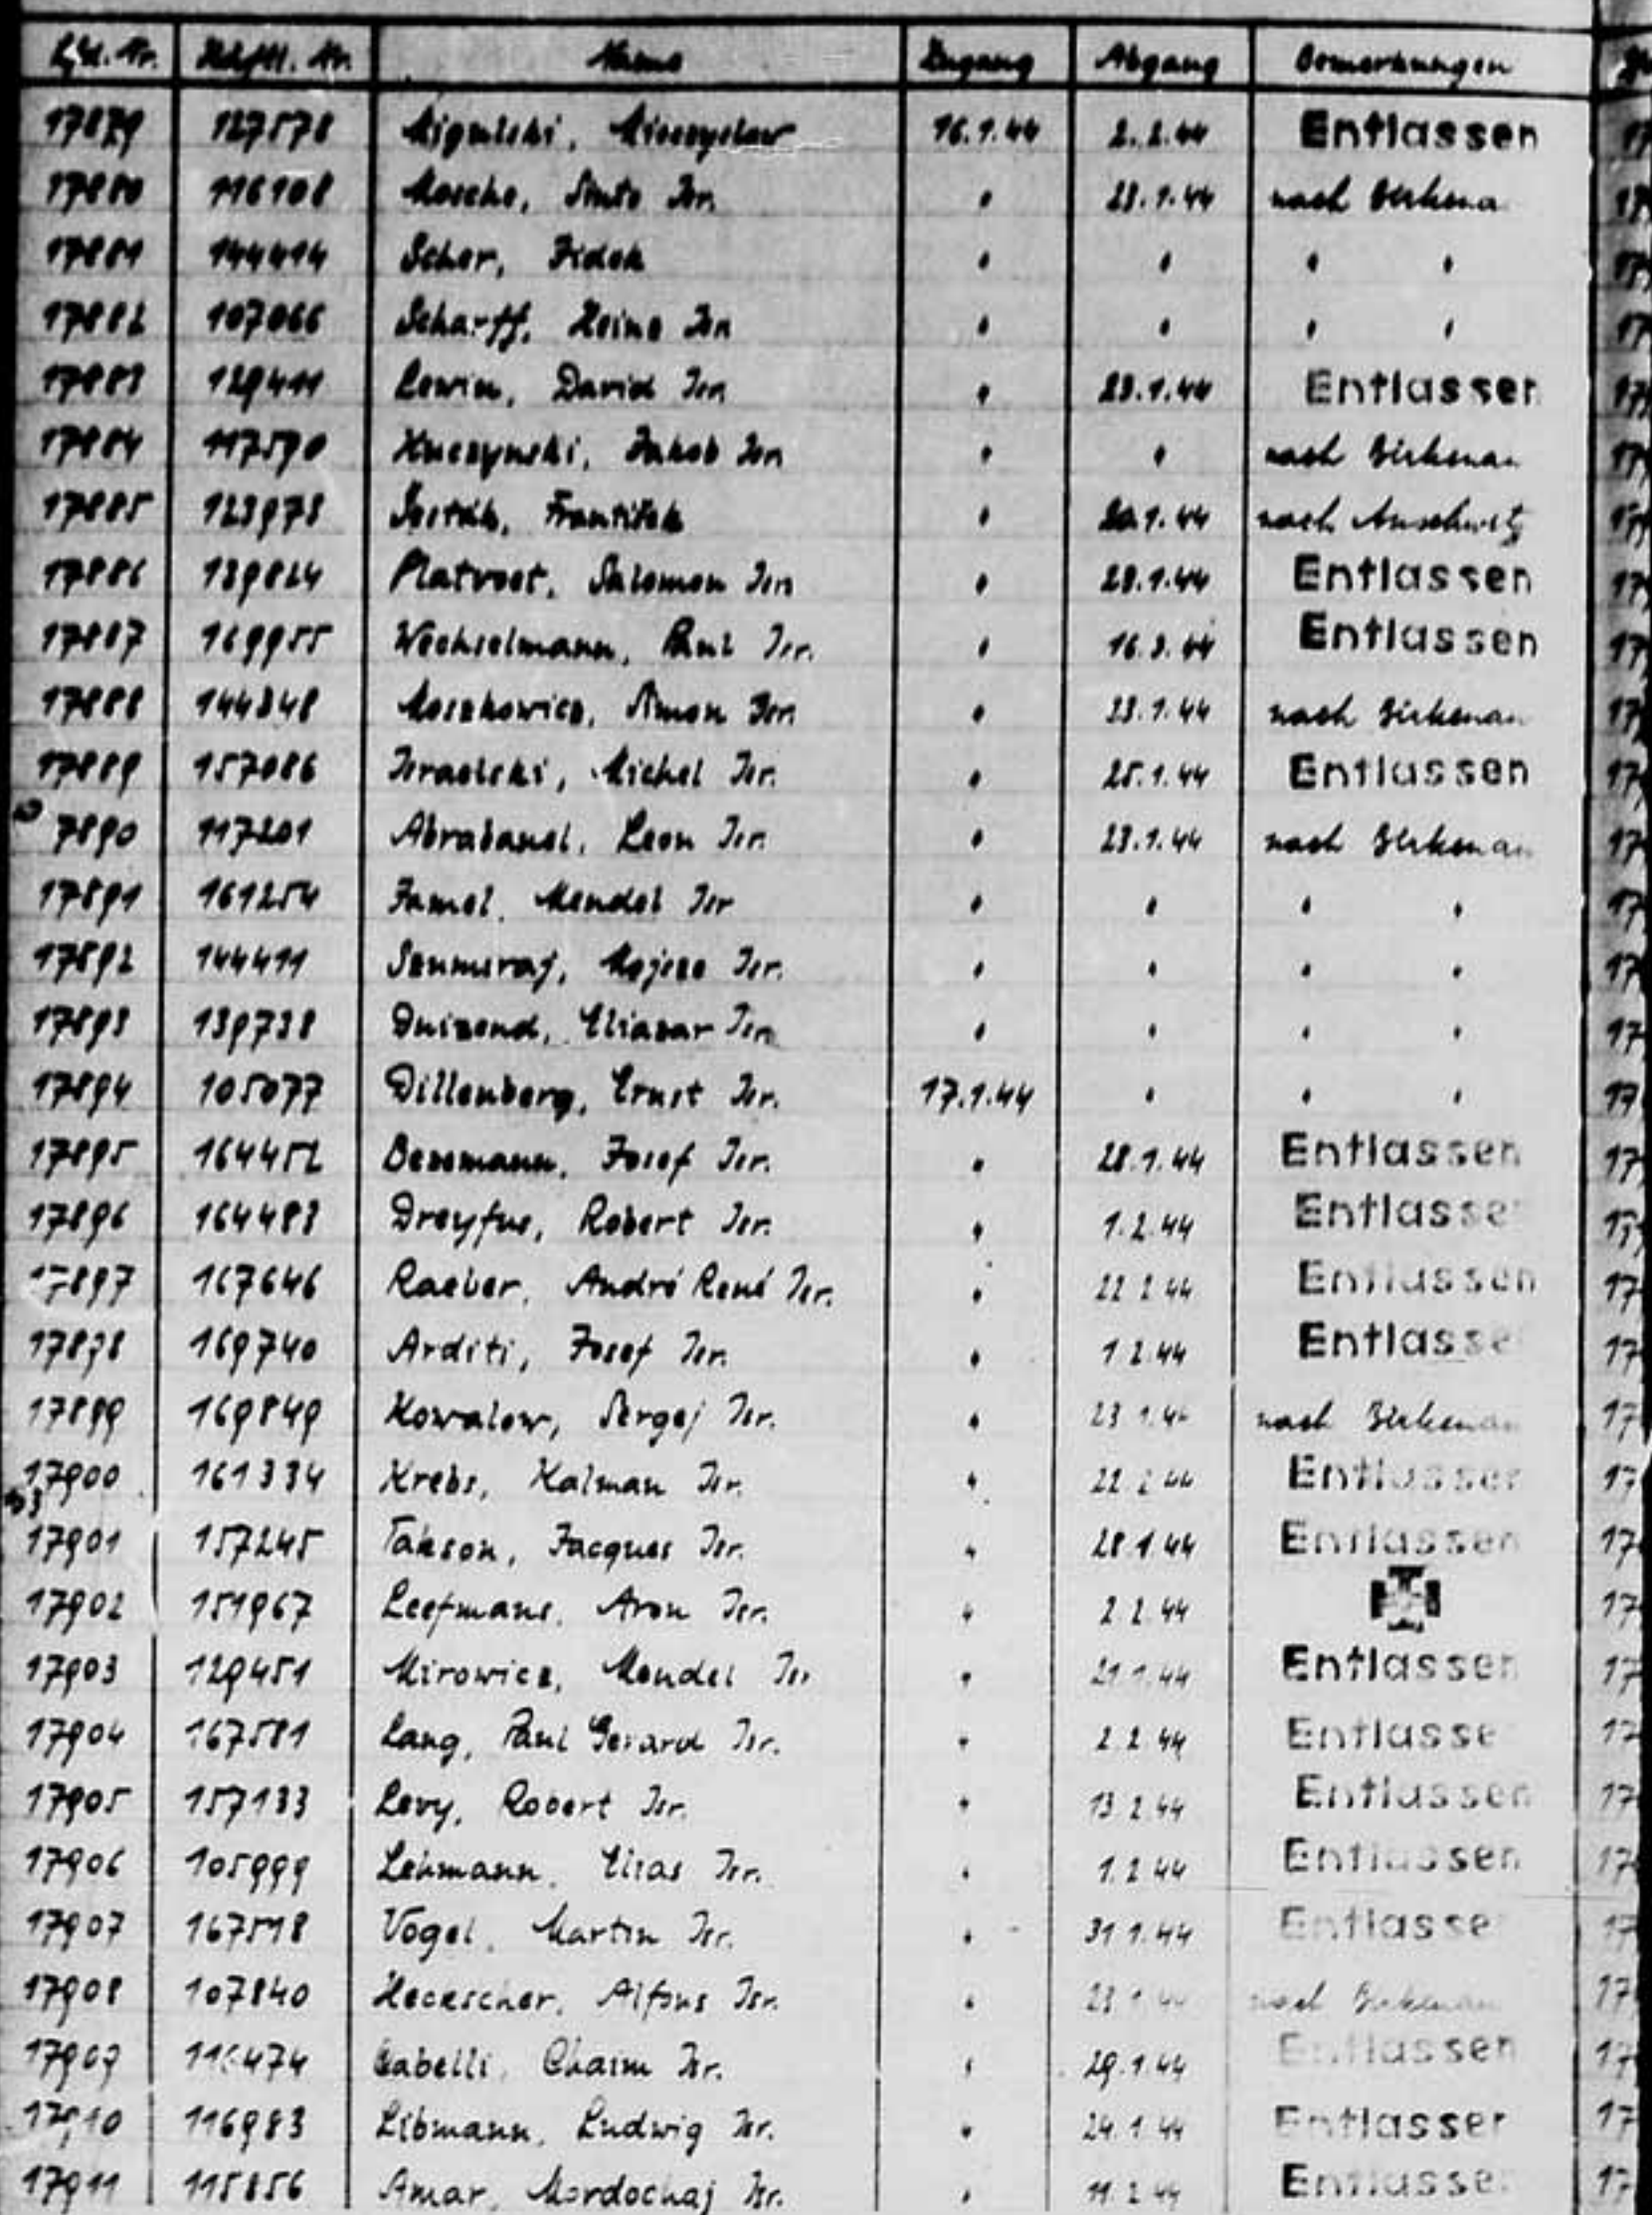 Lfd. Nr. Häftl. Nr. Name Zugang Abgang Bemerkungen
17879 127578 Migulski, Mieczyslaw 16.1.44 2.2.44 Entlassen
17880 116108 Mosche, Anto Isr. " 23.1.44 nach Birkena
17881 144414 Scher, Zidek " " " "
17882 107066 Scharff, Heinz Isr " " " "
17883 129411 Lewin, David Isr " 23.1.44 Entlasser
17884 117590 Kuczynski, Jakob Isr " " nach Birkenau
17885 123973 František " 20.1.44 nach Auschwitz
17886 139824 Platvoet, Salomon Isr " 29.1.44 Entlassen
17887 169955 Wechselmann, Paul Isr. " 16.3.44 Entlassen
17888 144348 Moszkowicz, Simon Isr. " 23.1.44 nach Birkenau
17889 157086 Israelski, Michel Isr. " 25.1.44 Entlassen
7890 117201 Abrabanel, Leon Isr. " 23.1.44 nach Birkenau
17891 161254 Famel, Mendel Isr " " " "
17892 144411 Szumiraj, Mojzes Isr. " " " "
17893 139738 Duizend, Eliazar Isr. " " " "
17894 105077 Dillenberg, Ernst Isr. 17.1.44 " " "
17895 164452 Bessmann, Josef Isr. " 28.1.44 Entlassen
17896 164483 Dreyfus, Robert Isr. " 1.2.44 Entlasse
17897 167646 Raeber, André René Isr. " 22 2 44 Entlassen
17898 169740 Arditi, Josef Isr. " 1 2 44 Entlasse
17899 169849 Kowalow, Sergej Isr. " 23 1.44 nach Birkenau
17900 161334 Krebs, Kalman Isr. " 22 2 44 Entlasser
17901 157245 Takson, Jacques Isr. " 28.1.44 Entlassen
17902 151967 Leefmans, Aron Isr. " 2 2.44
17903 129451 Mirowicz, Mendel Isr " 21 1.44 Entlassen
17904 167581 Lang, Paul Gerard Isr. " 2 2 44 Entlasse
17905 157133 Levy, Robert Isr. " 13 2 44 Entlassen
17906 105999 Lehmann, Elias Isr. " 1.2 44 Entlassen
17907 167518 Vogel, Martin Isr. " 31 1.44 Entlasse
17908 107840 Heckscher, Alfons Isr. " 23 1 44 nach Birkenau
17909 116474 Gabelli, Chaim Isr. " 29.1.44 Entlassen
17910 116983 Libmann, Ludwig Isr. " 24.1 44 Entlasser
17911 115856 Amar, Mordochaj Isr. " 11.2 44 Entlasse